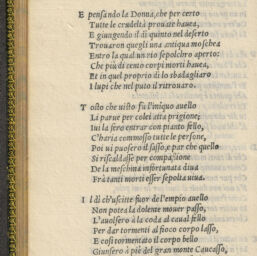 E pensando la Donna, che per certo
Tutte le crudeltà prouate haueа,
E giungendo il dì quinto nel deserto
Trouaron quegli una antiqua moschea
Entro la qual un rio sepolchro aperto:
Che più di cento corpi morti hauea,
Et in quel proprio di lo sbadagliaro
I lupi che nel puto il ritrouaro.
Tosto che uisto fu l'iniquo auello
Li parue per colei atta prigione;
Iui la fero entrar con pianto fello,
C'haria commosso tutte le persone,
Poi ui pusero il sasso, e par che quello
Si riscaldasse per compassione
De la meschina infortunata diua
Frà tanti morti esser sepolta uiua.
I l dì ch'uscite fuor de l'empio auello
Non potea la dolente mouer passo,
L'auolsero à la coda al caual fello
Per dar tormenti al fioco corpo lasso,
E così tormentato il corpo bello
Giunsero à piè del gran monte Caucasso,